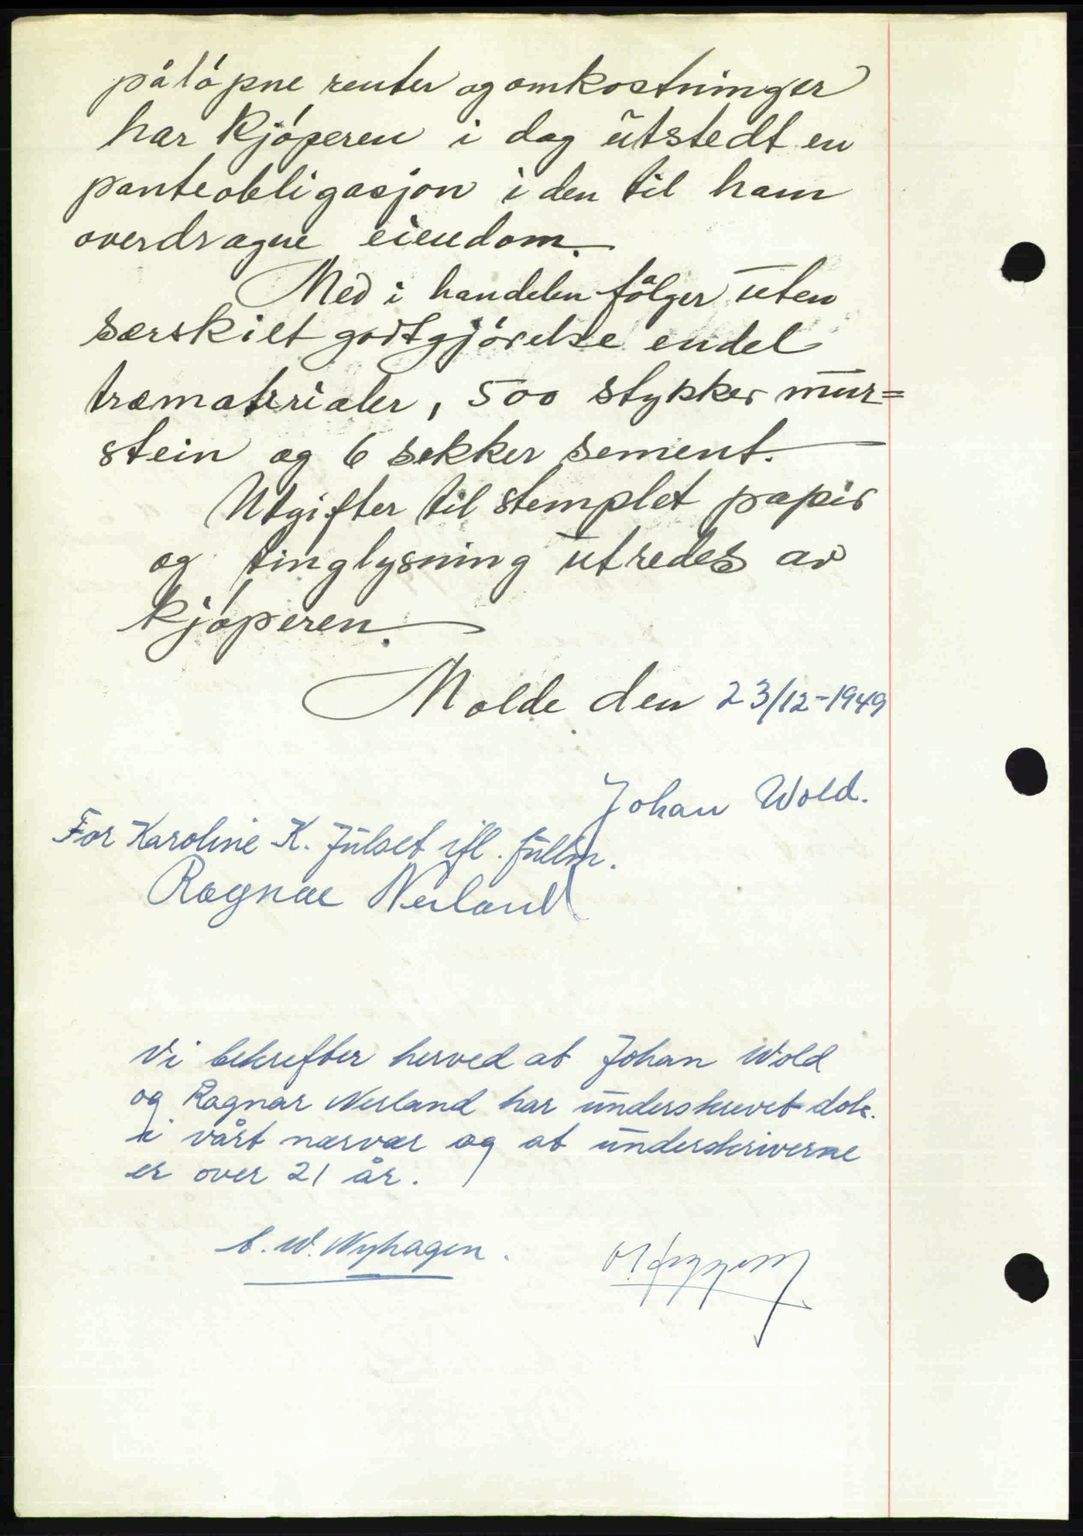 påløpne renter og omkostninger
har kjøperen i dag utstedt en
panteobligasjon i den til ham
overdragne eiendom.
Med i handelen følger uten
særskilt godtgjørelse endel
træmaterialer, 500 stykker mur=
stein og 6 sekker sement.
Utgifter til stemplet papir
og tinglysning utredes av
kjøperen.
Molde den 23/12-1949
Johan Wold.
For Karoline K. Julset ifl. fullm.
Ragnar Nerland
Vi bekrefter herved at Johan Wold
og Ragnar Nerland har underskrevet dok.
i vårt nærvær og at underskriverne
er over 21 år.
C. W. Nyhagen.